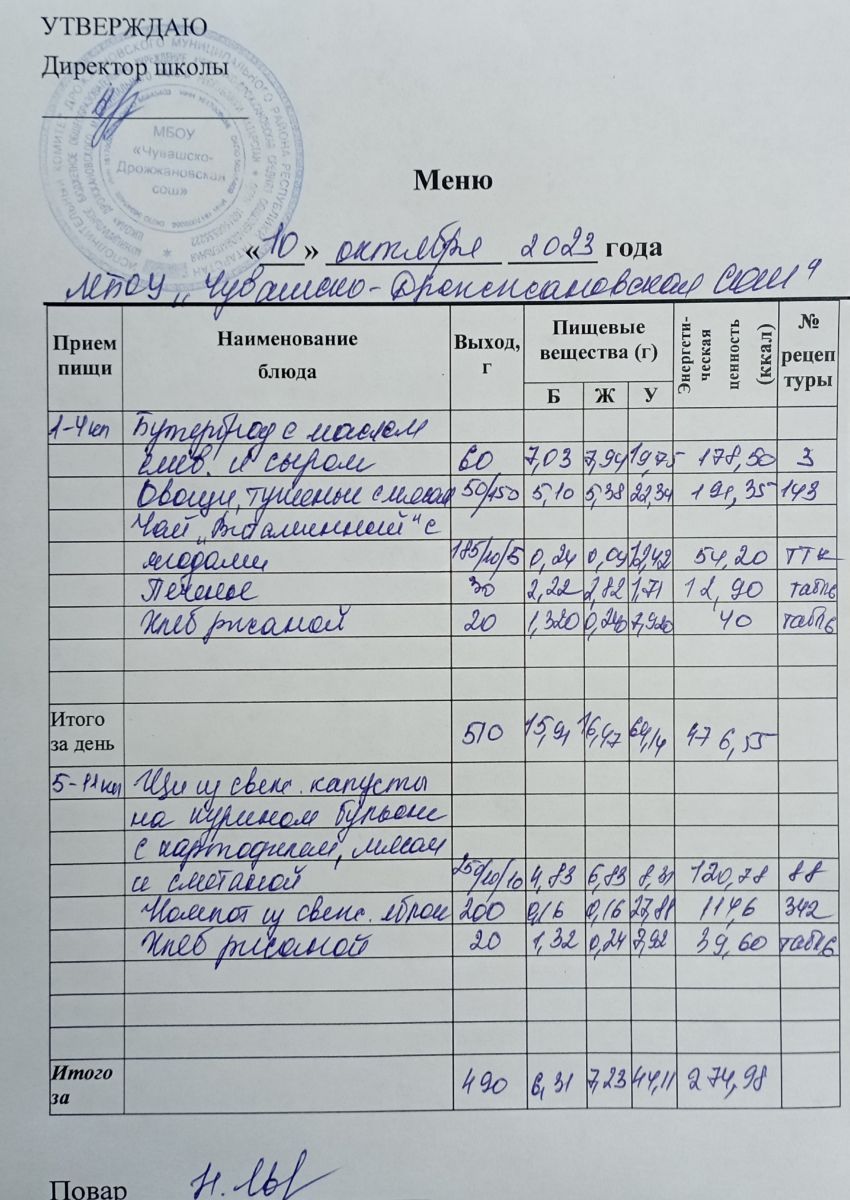 УТВЕРЖДАЮ
Директор школы
МБОУ
«Чувашско-
Дрожжановская
сош»
Меню
«10» октября 2023 года
МБОУ „Чувашско-Дрожжановская СОШ"
Прием пищи Наименование блюда Выход, г Пищевые вещества (г) Б Ж У Энергети-ческая ценность (ккал) № рецептуры
1-4 кл Бутерброд с маслом
слив. и сыром 60 7,03 7,94 19,75 178,50 3
Овощи, тушеные с мясом 50/150 5,10 5,38 22,34 191,35 143
Чай „Витаминный" с
ягодами 185/10/5 0,24 0,09 12,42 54,20 ТТК
Печенье 30 2,22 2,82 1,71 12,90 табл6
Хлеб ржаной 20 1,320 0,240 7,920 40 табл6
Итого за день 510 15,91 16,47 64,14 476,55
5-11 кл Щи из свеж. капусты
на курином бульоне
с картофелем, мясом
и сметаной 250/10/10 4,83 6,83 8,31 120,78 88
Компот из свеж. яблок 200 0,16 0,16 27,88 114,6 342
Хлеб ржаной 20 1,32 0,24 7,92 39,60 табл6
Итого за 490 6,31 7,23 44,11 274,98
Повар